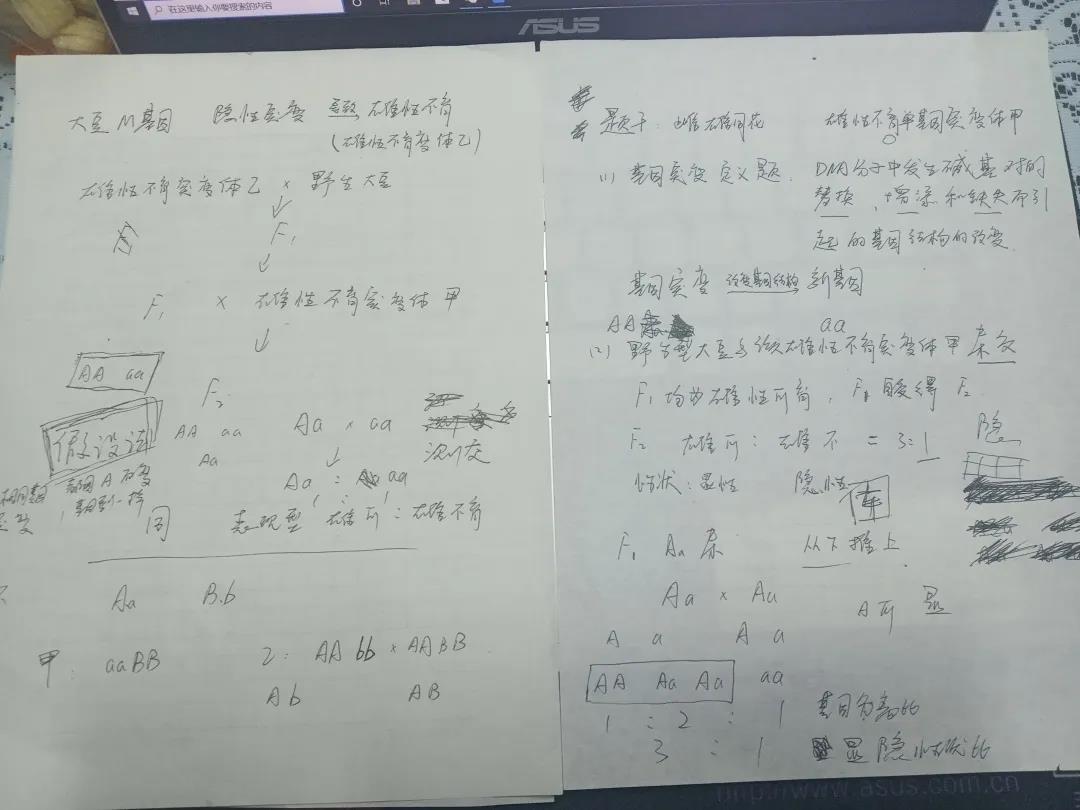 在这里输入你要搜索的内容
ASUS
大豆M基因 隐性突变 导致 雄性不育
(雄性不育突变体乙)
雄性不育突变体乙 × 野生大豆
F₁
F₁ × 雄性不育突变体甲
AA aa
F₂
假设法
AA aa
Aa
Aa × aa
测交
Aa : aa
1 : 1
同
表现型 雄可 : 雄不育
Aa Bb
甲: aaBB
乙: AAbb × AABB
Ab AB
题干: 雌雄同花 雄性不育单基因突变体甲
(1) 基因突变定义题. DNA分子中发生碱基对的
替换、增添和缺失而引
起的基因结构的改变.
基因突变 改变基因结构 新基因
AA aa
(2) 野生型大豆与雄性不育突变体甲杂交
F₁均为雄性可育, F₁自交得F₂
F₂ 雄可 : 雄不 = 3:1
隐
性状: 显性 隐性
F₁ Aa 杂 从下推上
Aa × Aa A可 显
A a A a
AA Aa Aa aa
1 : 2 : 1 基因分离比
3 : 1 显隐性状比
http://www.asus.com.cn